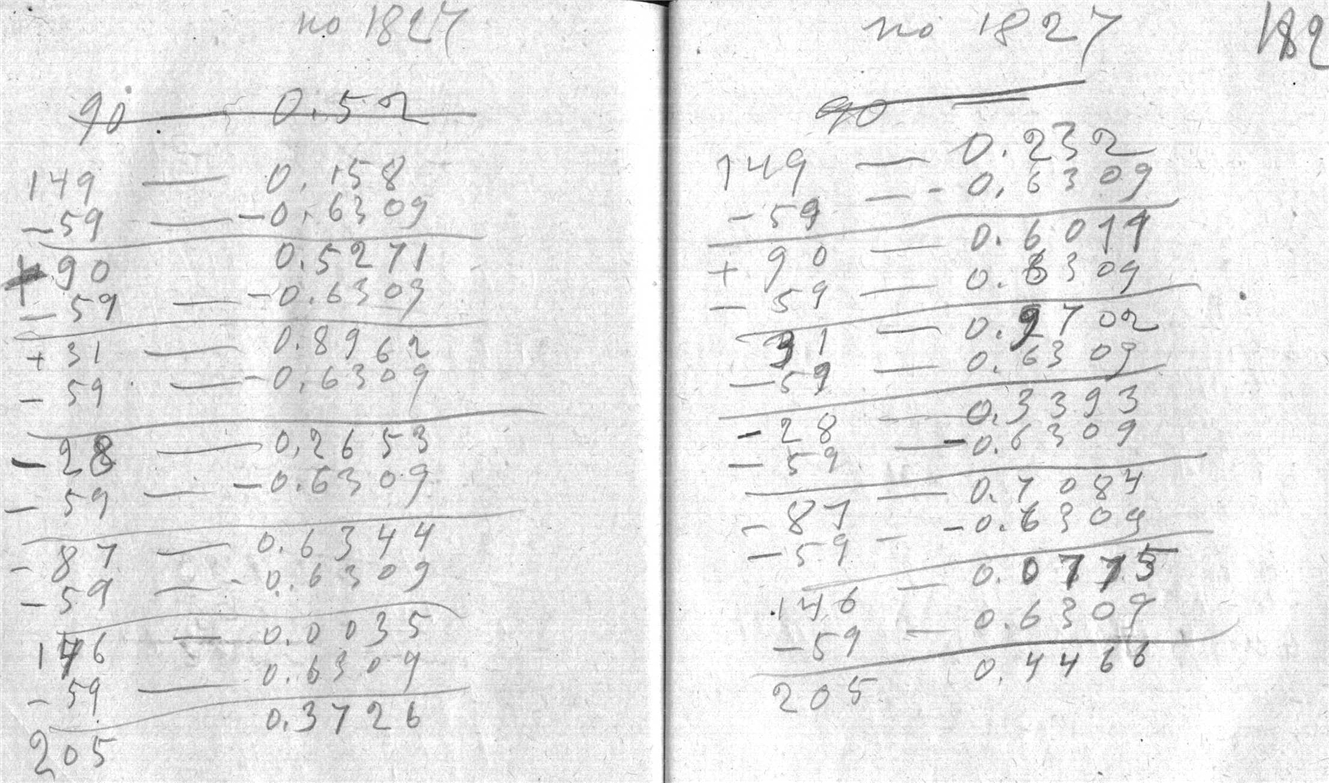 по 1827
90 — 0.52
149 — 0.158
-59 — -0.6309
+90 0.5271
-59 — -0.6309
+31 — 0.8962
-59 — -0.6309
-28 — 0.2653
-59 — -0.6309
-87 — 0.6344
-59 — -0.6309
146 — 0.0035
-59 — 0.6309
205 0.3726
по 1827 182
90 —
149 — 0.232
-59 — -0.6309
+90 — 0.6011
-59 — 0.6309
31 — 0.9702
-59 — 0.6309
-28 — 0.3393
-59 — -0.6309
-87 — 0.7084
-59 - -0.6309
146 — 0.0775
-59 — 0.6309
205 0.4466